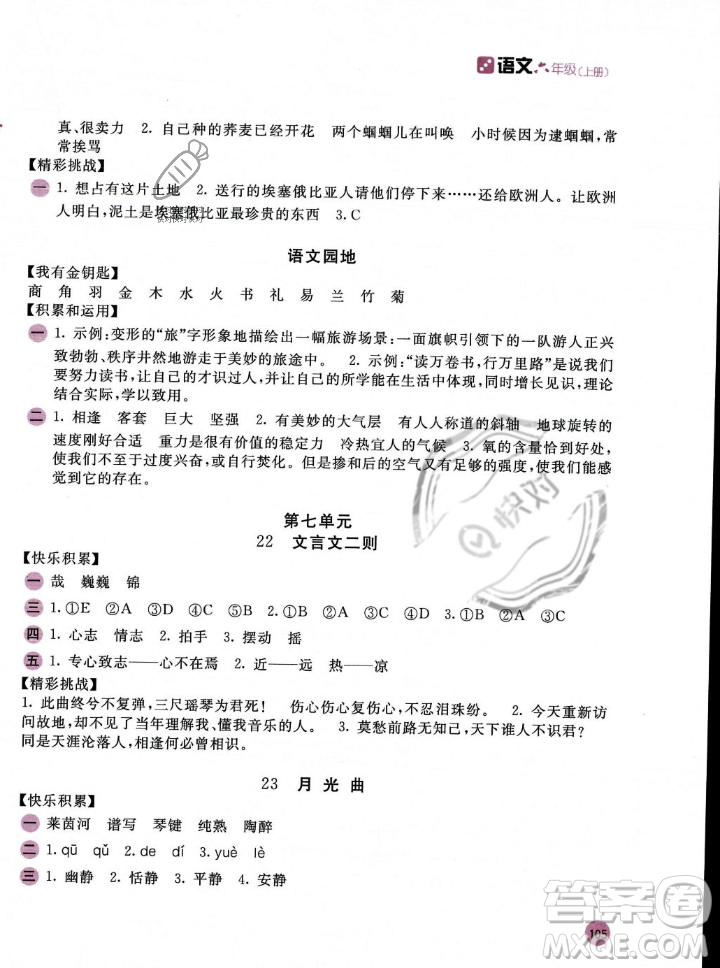 语文 六年级(上册)
真、很卖力 2. 自己种的荞麦已经开花 两个蝈蝈儿在叫唤 小时候因为逮蝈蝈,常
常挨骂
【精彩挑战】
一 1. 想占有这片土地 2. 送行的埃塞俄比亚人请他们停下来……还给欧洲人。让欧洲
人明白,泥土是埃塞俄比亚最珍贵的东西 3.C
语文园地
【我有金钥匙】
商 角 羽 金 木 水 火 书 礼 易 兰 竹 菊
【积累和运用】
一 1. 示例:变形的“旅”字形象地描绘出一幅旅游场景:一面旗帜引领下的一队游人正兴
致勃勃、秩序井然地游走于美妙的旅途中。 2. 示例:“读万卷书,行万里路”是说我们
要努力读书,让自己的才识过人,并在生活中体现,同时增长见识,理论
结合实际,学以致用。
二 1. 相逢 客套 巨大 坚强 2. 有美妙的大气层 有人人称道的斜轴 地球旋转的
速度刚好合适 重力是很有价值的稳定力 冷热宜人的气候 3. 氧的含量恰到好处,
使我们不至于过度兴奋,或自行焚化。但是掺和后的空气又有足够的强度,使我们能感
觉到它的存在。
第七单元
22 文言文二则
【快乐积累】
一 哉 巍巍 锦
三 1.①E ②A ③D ④C ⑤B 2.①A ②C ③D ④C 1.①B ②A ③C
四 1. 心志 情志 2. 拍手 3. 摆动 摇
五 1. 专心致志——心不在焉 2. 近——远 热——凉
【精彩挑战】
1. 此曲终兮不复弹,三尺瑶琴为君死! 伤心伤心复伤心,不忍泪珠纷。 2. 今天重新访
问故地,却再也见不到了当年理解我、懂我音乐的人。 3. 莫愁前路无知己,天下谁人不识君?
同是天涯沦落人,相逢何必曾相识。
23 月光曲
【快乐积累】
一 莱茵河 谱写 琴键 纯熟 陶醉
二 1.qū qǔ 2.de dí 3.yuè lè
三 1. 幽静 2. 恬静 3. 平静 4. 安静
105
快对
答案圈
MXQE.COM